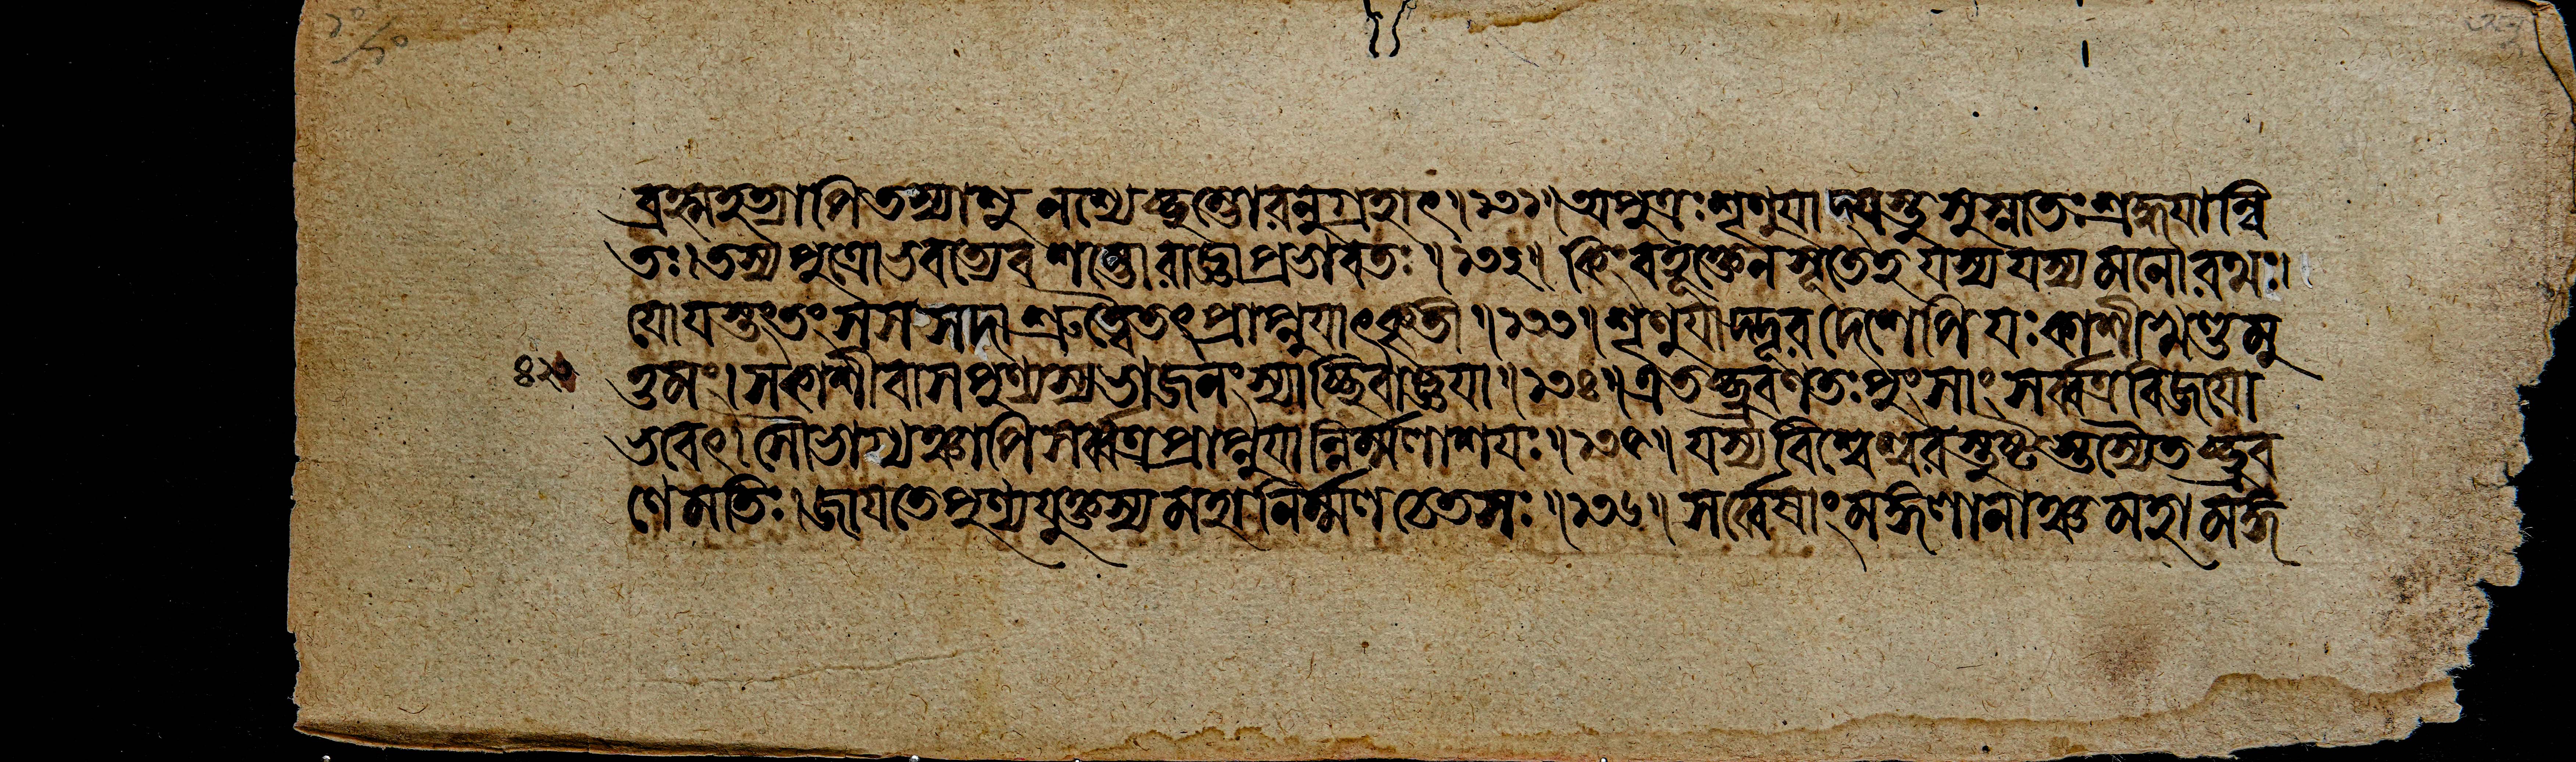 ব্রহ্মহত্যাপি তস্যাশু নশ্যেচ্ছম্ভোরনুগ্রহাৎ॥১৩১॥অপুত্রঃ শৃণুযাদ্যস্তু সুস্নাতঃ শ্রদ্ধযান্বি
তঃ। তস্য পুত্রো ভবত্যেব শম্ভোরাজ্ঞাপ্রভাবতঃ॥১৩২॥ কিং বহূক্তেন সূতেহ যস্য যস্য মনোরথঃ।
যো যস্তং তং স স সদা শ্রুত্বৈতৎ প্রাপ্নুযাৎ কৃতী॥১৩৩॥শৃণুযাদ্দূরদেশেপি যঃ কাশীখণ্ডমু
ত্তমং। স কাশীবাসপুণ্যস্য ভাজনং স্যাচ্ছিবাজ্ঞযা॥১৩৪॥এতচ্ছ্রবণতঃ পুংসাং সর্ব্বত্র বিজযো
৪২৩
ভবেৎ। সৌভাগ্যঞ্চাপি সর্ব্বত্র প্রাপ্নুযান্নির্ম্মলাশযঃ॥১৩৫॥ যস্য বিশ্বেশ্বরস্তুষ্টস্তস্যৈতচ্ছ্রব
ণে মতিঃ। জাযতে পুণ্যযুক্তস্য মহানির্ম্মলচেতসঃ॥১৩৬॥ সর্ব্বেষাং মঙ্গলানাঞ্চ মহামঙ্গ